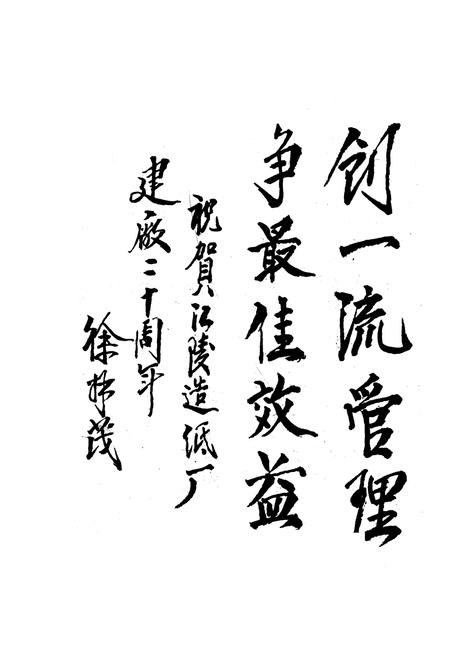 创一流管理
争最佳效益
祝賀江陵造纸厂
建廠二十周年
徐林茂